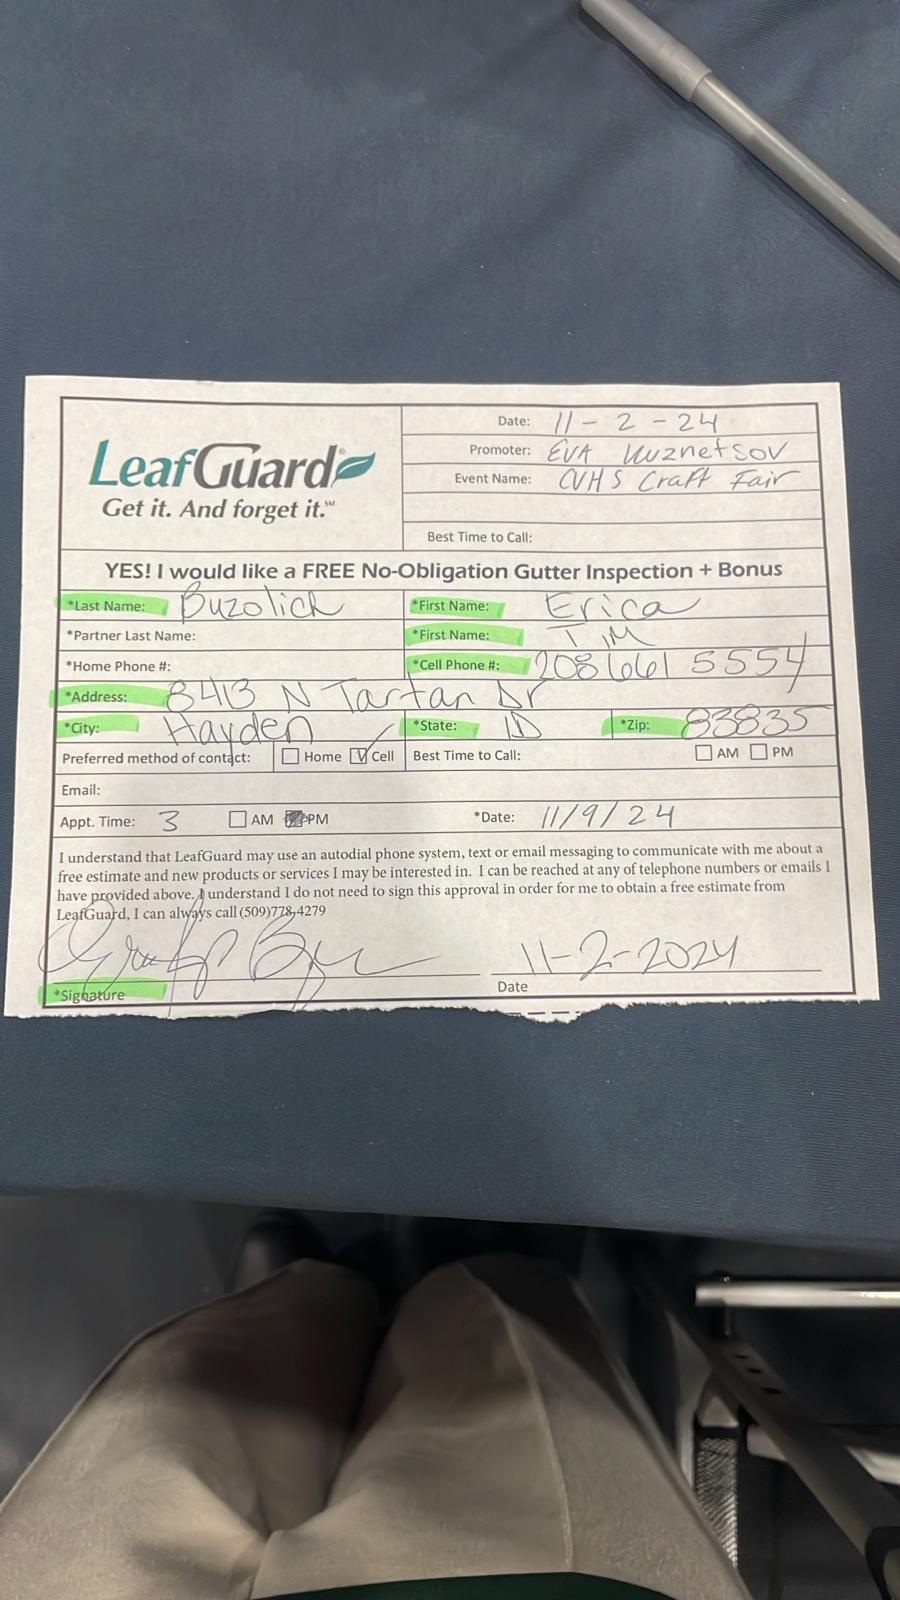 Date: 11-2-24
LeafGuard
Get it. And forget it.℠
Promoter: EVA Kuznetsov
Event Name: CVHS Craft Fair
Best Time to Call:
YES! I would like a FREE No-Obligation Gutter Inspection + Bonus
*Last Name: Buzolich *First Name: Erica
*Partner Last Name: *First Name: Tim
*Home Phone #: *Cell Phone #: 208 661 5554
*Address: 8413 N Tartan Dr
*City: Hayden *State: ID *Zip: 83835
Preferred method of contact: Home Cell Best Time to Call: AM PM
Email:
Appt. Time: 3 AM PM *Date: 11/9/24
I understand that LeafGuard may use an autodial phone system, text or email messaging to communicate with me about a
free estimate and new products or services I may be interested in. I can be reached at any of telephone numbers or emails I
have provided above. I understand I do not need to sign this approval in order for me to obtain a free estimate from
LeafGuard, I can always call (509)778-4279
11-2-2024
*Signature Date